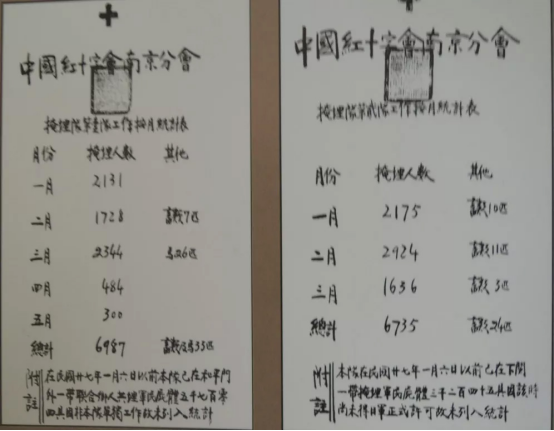 中國紅十字會南京分會
掩埋隊第壹隊工作按月統計表
月份 掩埋人數 其他
一月 2131
二月 1728 7匹
三月 2344 馬26匹
四月 484
五月 300
總計 6987 33匹
附註
在民國廿七年一月六日以前本隊已在和平門
外一帶聯合掩埋軍民屍體五千七百零
四具因非本隊單獨工作故未列入統計
中國紅十字會南京分會
掩埋隊第貳隊工作按月統計表
月份 掩埋人數 其他
一月 2175 10匹
二月 2924 11匹
三月 1636 3匹
總計 6735 24匹
附註
本隊在民國廿七年一月六日以前已在下關
一帶掩埋軍民屍體三千二百四十五具因該時
尚未得日軍正式許可故未列入統計